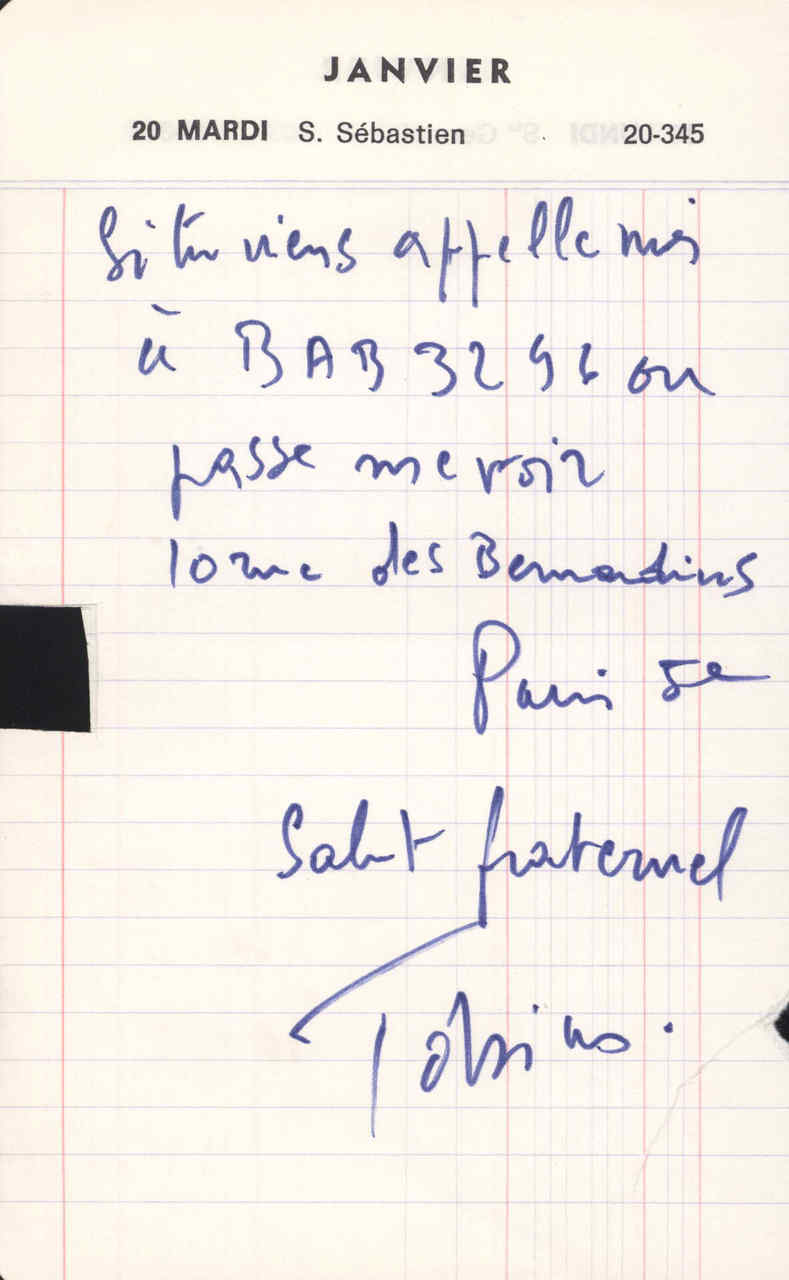 JANVIER
20 MARDI S. Sébastien 20-345
Si tu viens appelle moi
à BAB 3296 ou
passe me voir
10 rue des Bernardins
Paris 5e
Salut fraternel